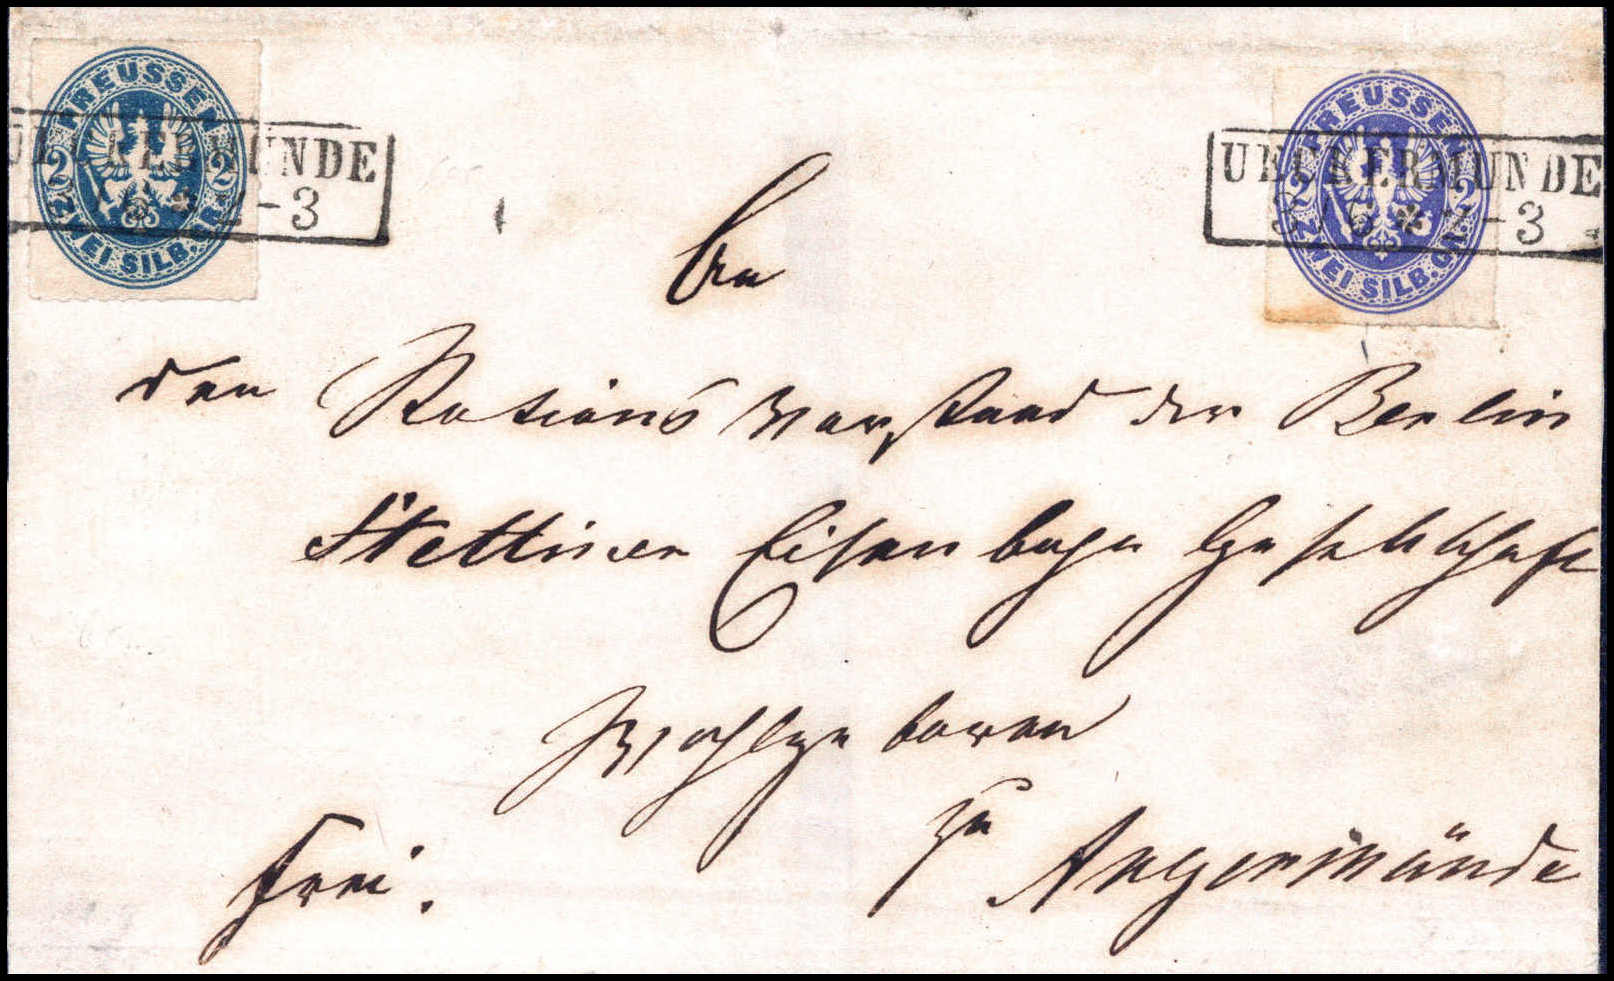 PREUSSEN
2 2
ZWEI SILB. GR.
UECKERMUNDE
2-3
PREUSSEN
2 2
ZWEI SILB. GR.
UECKERMUNDE
5 6 * 2-3
An
den Stations Vorstand der Berlin
Stettiner Eisenbahn Gesellschaft
Wohlgeboren
zu Angermünde
Frei.